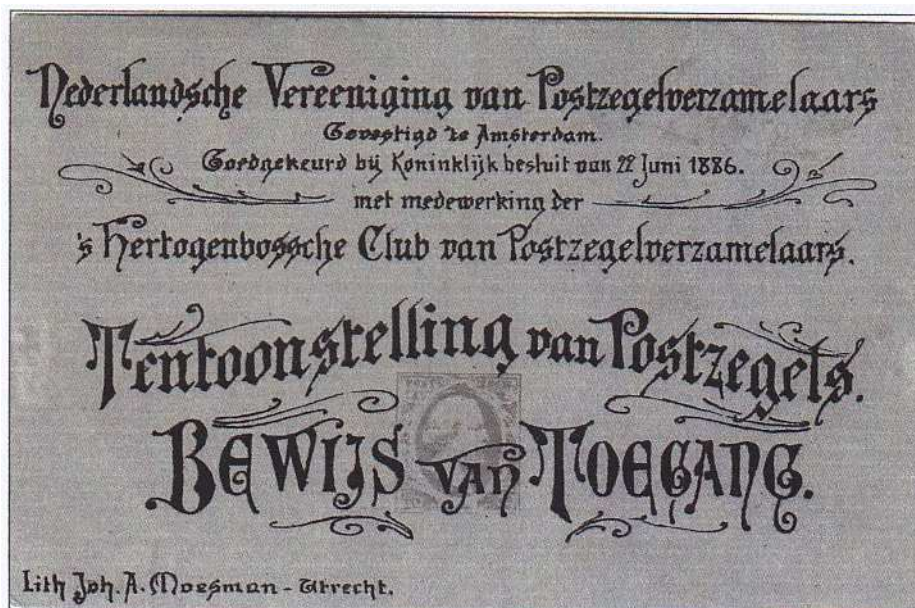 Nederlandsche Vereeniging van Postzegelverzamelaars
Gevestigd te Amsterdam.
Goedgekeurd bij Koninklijk besluit van 22 Juni 1886.
met medewerking der
's Hertogenbossche Club van Postzegelverzamelaars.
Tentoonstelling van Postzegels.
BEWIJS VAN TOEGANG.
Lith Joh. A. Moesman - Utrecht.